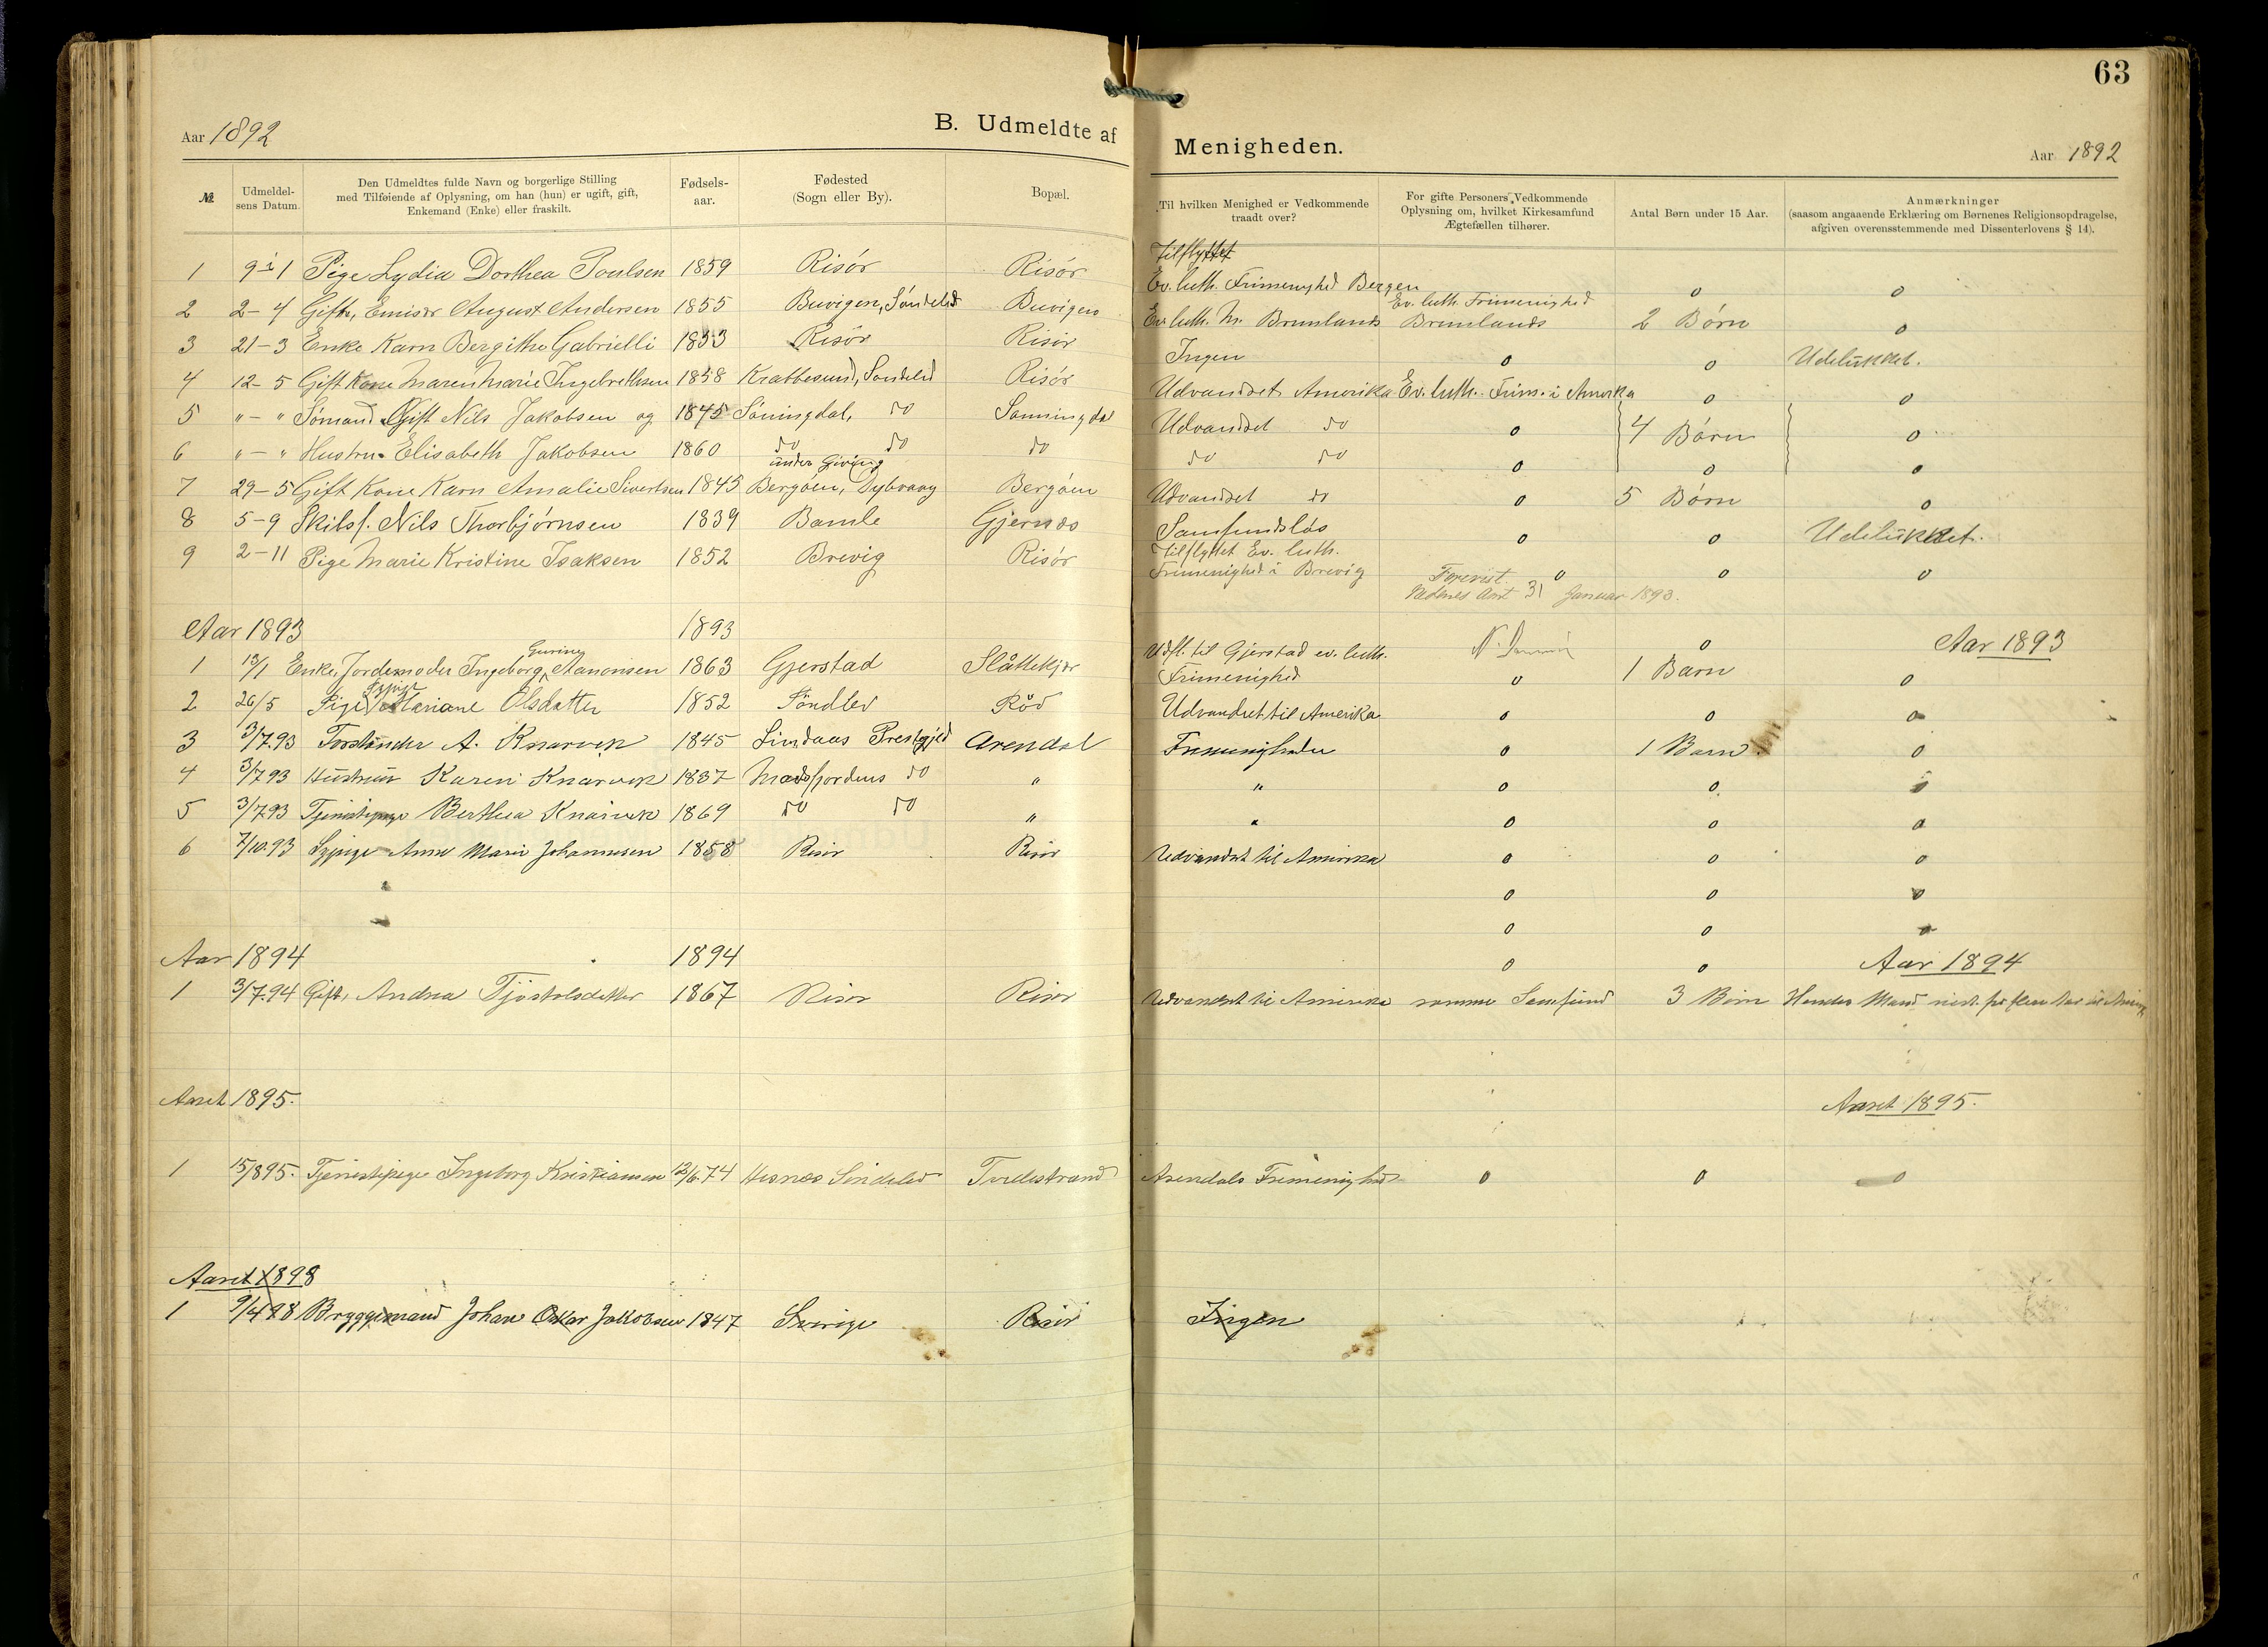 63
Aar 1892
B. Udmeldte af Menigheden.
Aar 1892
№
Udmeldelsens Datum.
Den Udmeldtes fulde Navn og borgerlige Stilling
med Tilføiende af Oplysning, om han (hun) er ugift, gift,
Enkemand (Enke) eller fraskilt.
Fødselsaar.
Fødested
(Sogn eller By).
Bopæl.
Til hvilken Menighed er Vedkommende
traadt over?
For gifte Personers Vedkommende
Oplysning om, hvilket Kirkesamfund
Ægtefællen tilhører.
Antal Børn under 15 Aar.
Anmærkninger
(saasom angaaende Erklæring om Børnenes Religionsopdragelse,
afgiven overensstemmende med Dissenterlovens § 14).
1 9-1 Pige Lydia Dorthea Poulsen 1859 Risör Risör Tilflyttet Ev. luth. Frimenighed Bergen o o
2 2-4 Gift, Emisær August Andersen 1855 Buvigen, Söndeled Buvigen Ev. luth. M. Brunlands Ev. luth. Frimenighed Brunlands 2 Börn o
3 21-3 Enke Karn Bergithe Gabrielli 1833 Risör Risör Ingen o o Udelukket.
4 12-5 Gift Kone Maren Marie Ingebrethsen 1858 Krabbesund, Söndeled Risör Udvandret Amerika Ev. luth. Frim. i Amerika o o
5 " - " Sömand Gift Nils Jakobsen og 1845 Sönningdal, do Sönningdal Udvandret do o 4 Börn o
6 " - " Hustru Elisabeth Jakobsen 1860 do do do do do o o o
7 29-5 Gift Kone Karn Amalie Sivertsen 1845 under Giving Bergöen, Dybvaag Bergöen Udvandret do o 5 Börn o
8 5-9 Skibsf. Nils Thorbjørnsen 1839 Bamle Gjernes Samfundslös o o Udelukket.
9 2-11 Pige Marie Kristine Isaksen 1852 Brevig Risör Tilflyttet Ev. luth. Frimenighed i Brevig o o o
Forevist
Nedenes Amt 31 Januar 1893.
Aar 1893 1893 o Aar 1893
1 13/1 Enke, Jordemoder Ingeborg Guring Aanonsen 1863 Gjerstad Slåttekjær Udfl. til Gjerstad ev. luth. Frimenighed o 1 Barn o
2 26/5 Pige Mariane Olsdatter 1852 Söndled Röd Udvandret til Amerika o o o
3 3/7.93 Forstander A. Knarvik 1845 Lindaas Prestegjeld Arendal Frimenigheden o 1 Barn o
4 3/7.93 Hustru Karen Knarvik 1837 do " " o o o
5 3/7.93 Tjenestepige Berthea Knarvik 1869 do do " " o o o
6 7/10.93 Sypige Anne Marie Johannesen 1858 Risör Risör Udvandret til Amerika o o o
o o o
o o o
Aar 1894 1894 o o Aar 1894
1 3/7.94 Gift, Andrea Tjöstolsdatter 1867 Risör Risör Udvandret til Amerika samme Samfund 3 Börn Hendes Mand
Aaret 1895. Aaret 1895.
1 15/8 95. Tjenestepige Ingeborg Kristiansen 12/6.74 Hesnes Söndeled Tvedestrand Arendals Frimenighed o o o
Aaret 1898
1 9/4 98 Bryggemand Johan Oskar Jakobsen 1847 Sverige Risör Ingen